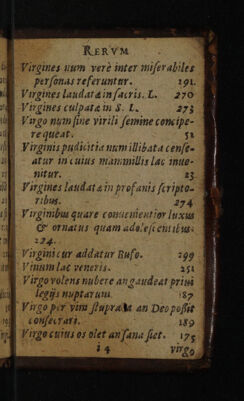 RERVM
Virgines num verè inter miserabiles
personas referuntur. 191.
Virgines laudatæ in sacris. L. 270
Virgines culpatæ in S. L. 273
Virgo num sine virili semine concipe-
re queat. 51
Virginis pudicitia num illibata cense-
atur in cuius mammillis lac inue-
nitur. 23
Virgines laudatæ in profanis scripto-
ribus. 274
Virginibus quare conuenientior luxus
& ornatus quam adolescentibus.
224.
Virgini cur addatur Bufo. 299
Vinum lac veneris. 251
Virgo volens nubere an gaudeat priui
legijs nuptarum 187
Virgo per vim stuprata an Deo possit
consecrari. 189
Virgo cuius os olet an sana fiet. 175
i 4 virgo